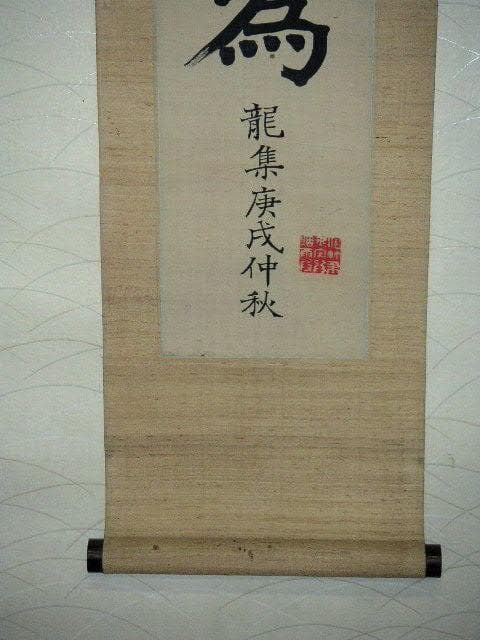 為
龍集庚戌仲秋